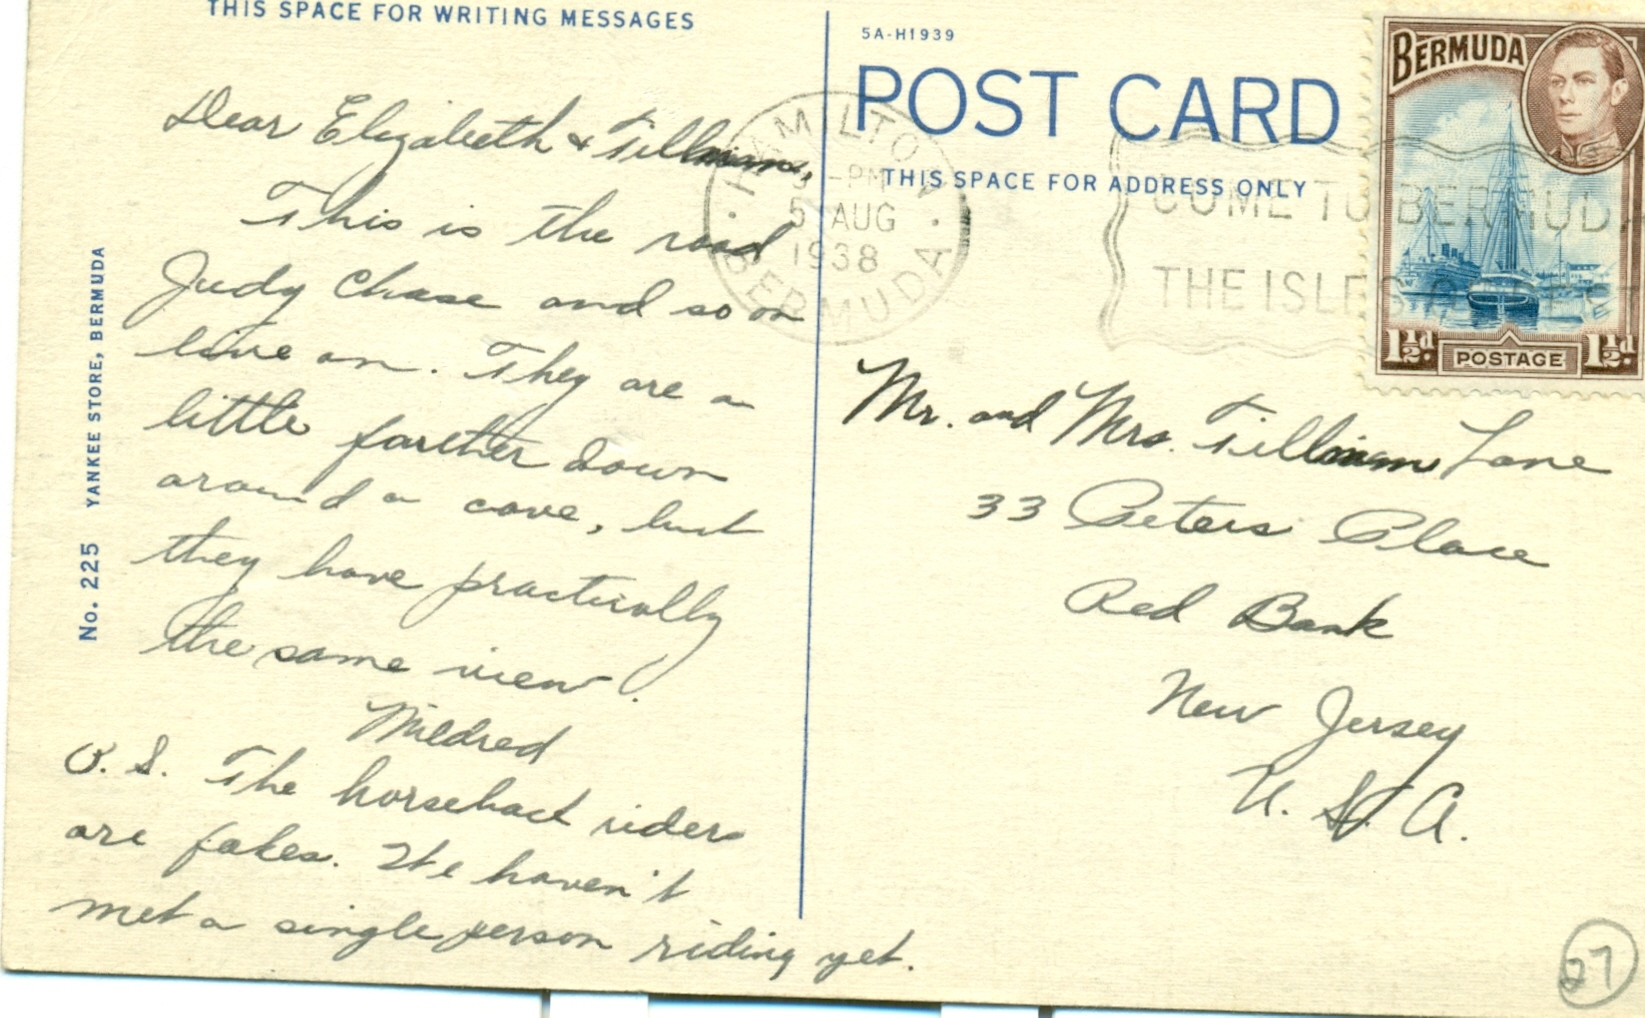 THIS SPACE FOR WRITING MESSAGES
Dear Elizabeth & Tillman,
This is the road
Judy Chase and so on
live on. They are a
little farther down
around a cove, but
they have practically
the same view.
Mildred
P.S. The horseback riders
are fakes. We haven't
met a single person riding yet.
No. 225 YANKEE STORE, BERMUDA
5A-H1939
POST CARD
THIS SPACE FOR ADDRESS ONLY
HAMILTON
-PM
5 AUG
1938
BERMUDA
COME TO BERMUDA
THE ISLES OF REST
BERMUDA
1½d. POSTAGE 1½d.
Mr. and Mrs. Tillman Lane
33 Peters Place
Red Bank
New Jersey
U. S. A.
27